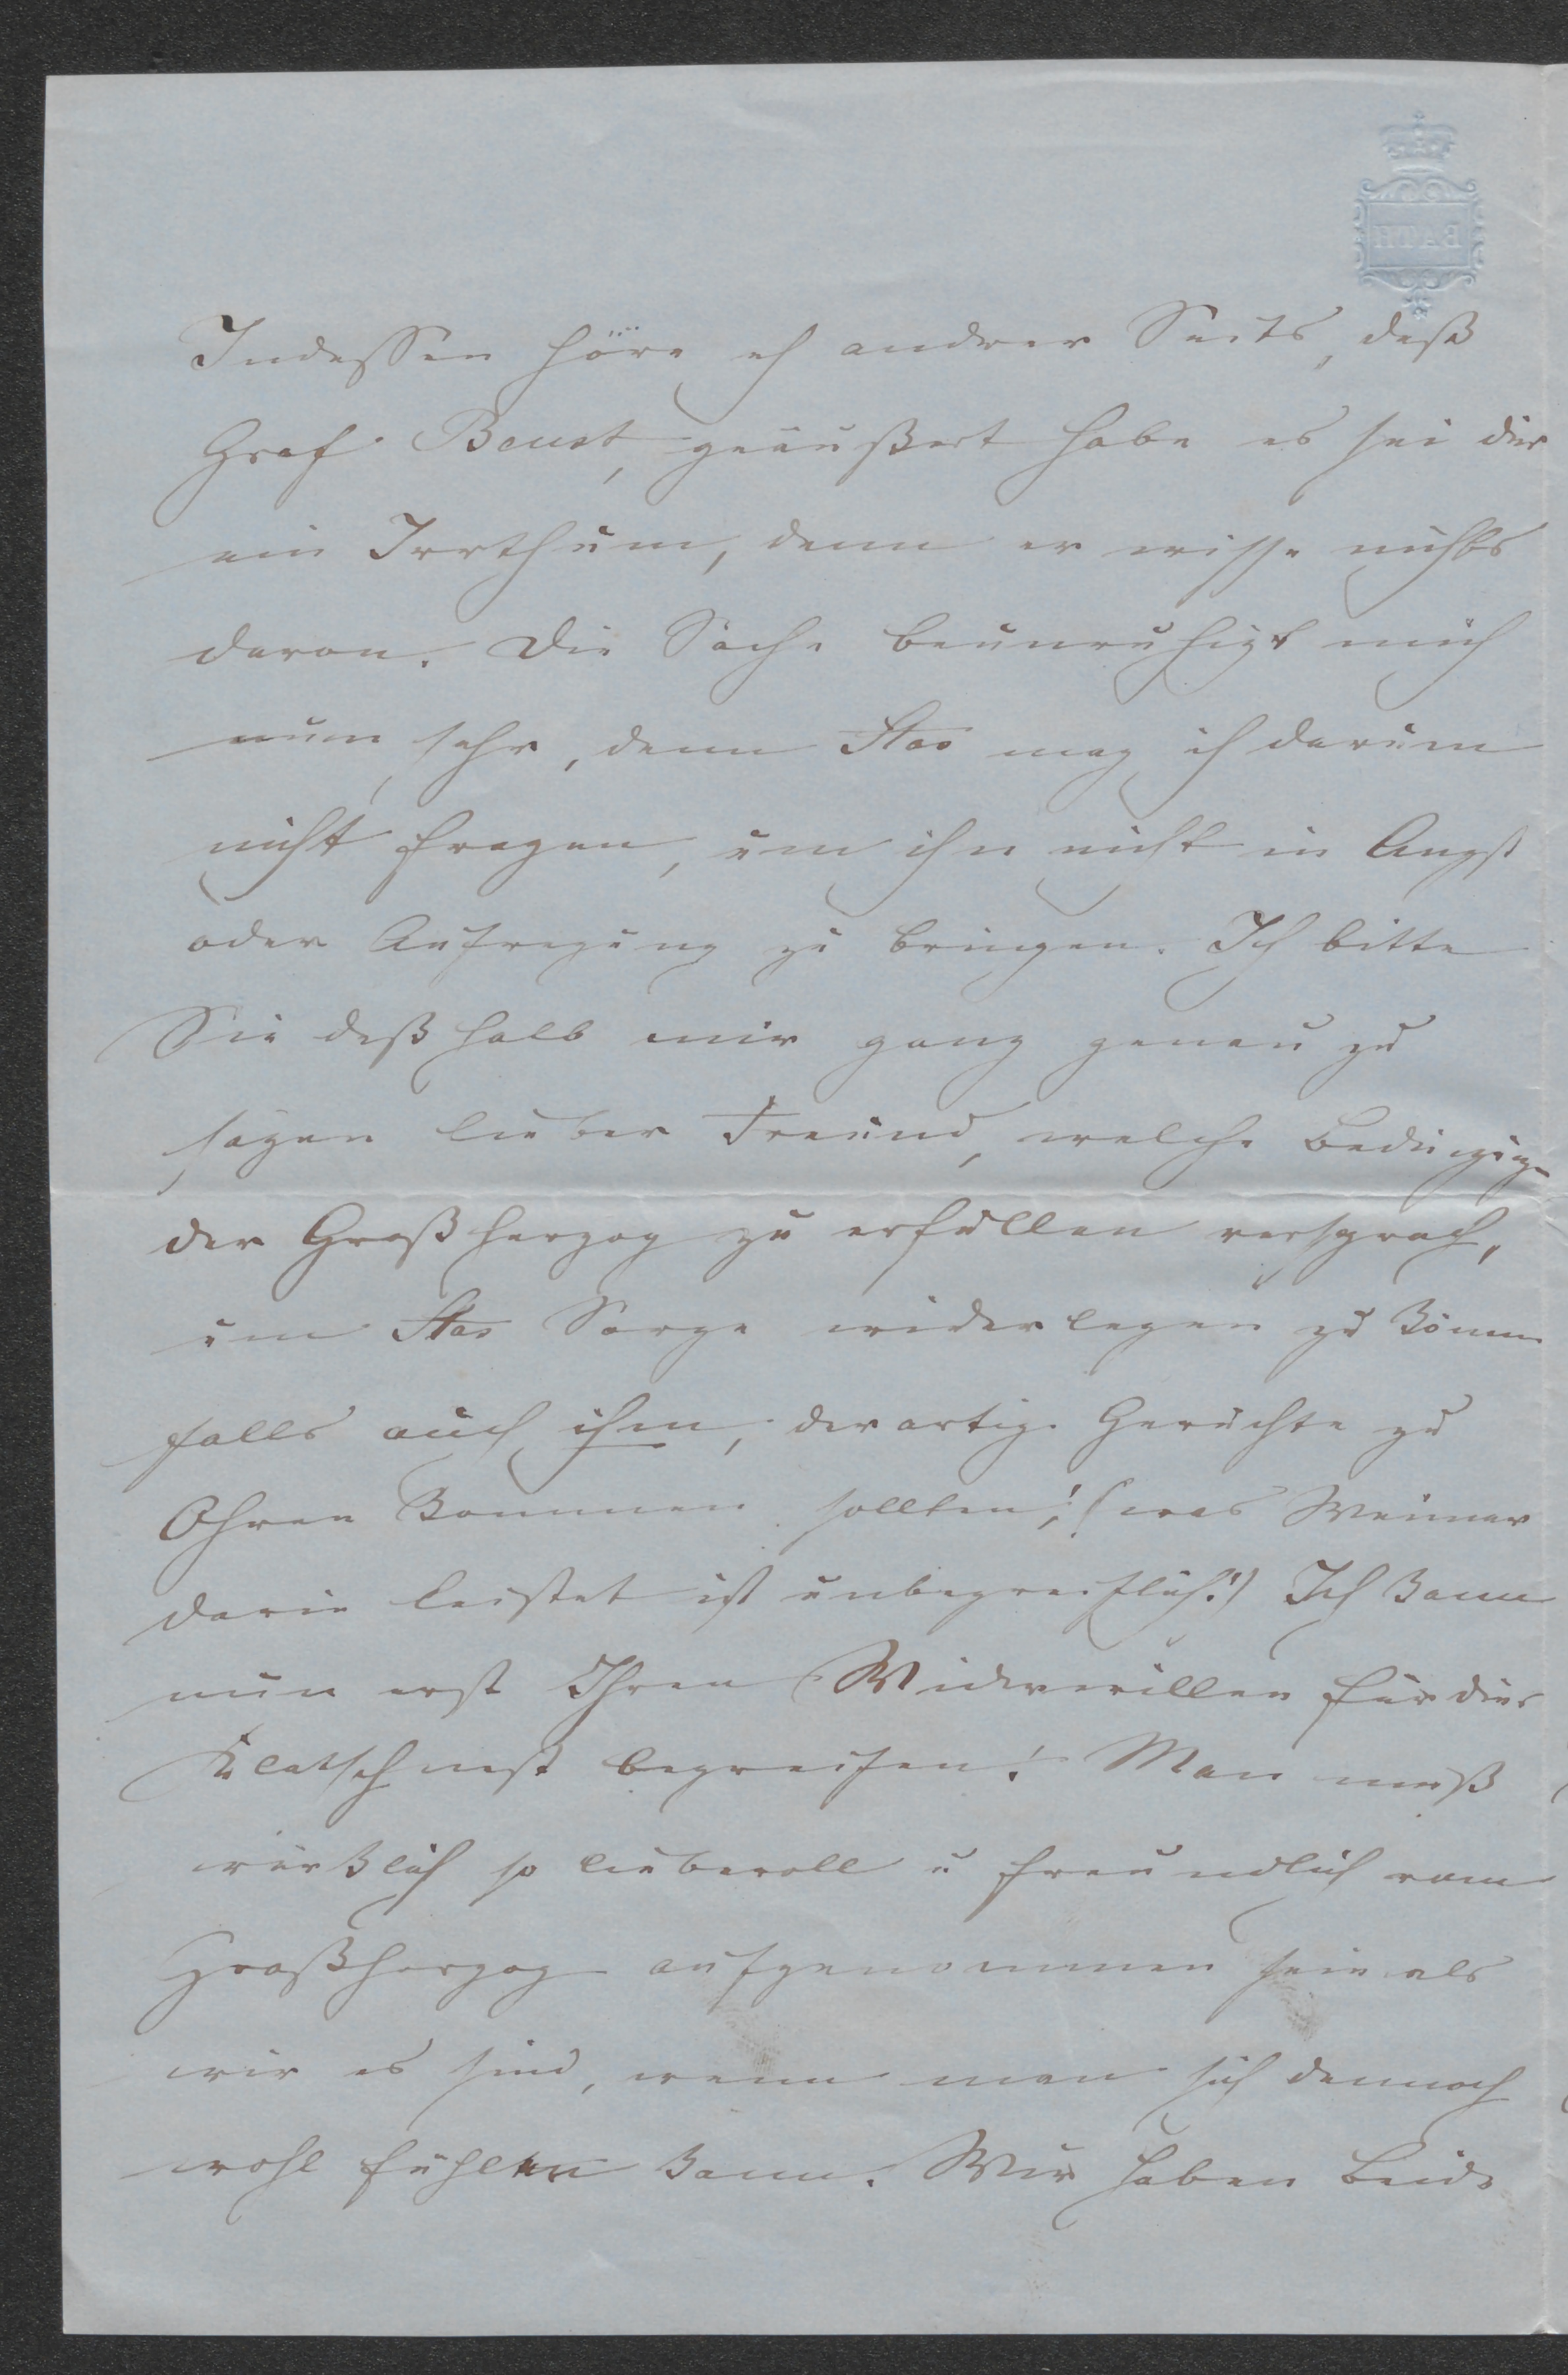 BATH
Indessen höre ich andrer Seits, daß
Graf Beust, geäußert habe es sei dies
ein Irrthum, denn er wisse nichts
davon. Die Sache beunruhigt mich
nun sehr, denn Stas mag ich darum
nicht fragen, um ihn nicht in Angst
oder Aufregung zu bringen. Ich bitte
Sie deßhalb mir ganz genau zu
sagen lieber Freund, welche Bedingungen
der Großherzog zu erfüllen versprach,
um Stas Sorge widerlegen zu können
falls auch ihm, derartige Gerüchte zu
Ohren kommen sollten! (was Weimar
darin leistet ist unbegreiflich!) Ich kann
nun erst Ihren Widerwillen für dies
Klatschnest begreifen! Man muß
wirklich so liebevoll u freundlich vom
Großherzog aufgenommen sein als
wir es sind, wenn man sich dennoch
wohl fühlen kann. Wir haben Beide